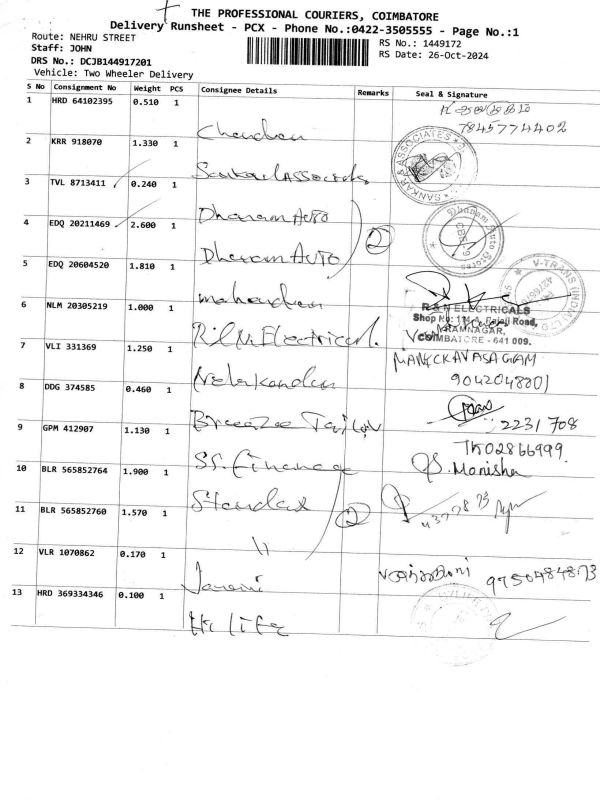 THE PROFESSIONAL COURIERS, COIMBATORE
Delivery Runsheet - PCX - Phone No.:0422-3505555 - Page No.:1
Route: NEHRU STREET
RS No.: 1449172
Staff: JOHN
RS Date: 26-Oct-2024
DRS No.: DCJB144917201
Vehicle: Two Wheeler Delivery
S No Consignment No Weight PCS Consignee Details Remarks Seal & Signature
1 HRD 64102395 0.510 1 Chandran
7845774402
2 KRR 918070 1.330 1 Sankar Associates
SANKAR & ASSOCIATES
3 TVL 8713411 0.240 1 Dhanam Auto
4 EDQ 20211469 2.600 1 Dhanam Auto 2
Dhanam Auto Stores
5 EDQ 20604520 1.810 1 mahendran
V-TRANS
6 NLM 20305219 1.000 1 R&N Electrical.
R & N ELECTRICALS
Shop No: Rajaji Road,
RAMNAGAR,
COIMBATORE - 641 009.
7 VLI 331369 1.250 1 Nelakandan
MANICKAVASAGAM
9042048001
8 DDG 374585 0.460 1 Breeze Tailor
2231708
9 GPM 412907 1.130 1 SS. Finance
TK02866999
10 BLR 565852764 1.900 1 Standard
S. Monisha
11 BLR 565852760 1.570 1 " 2
12 VLR 1070862 0.170 1 Janani
9750484873
13 HRD 369334346 0.100 1 Hi life